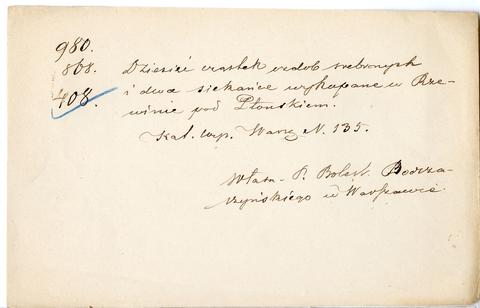 980.
868.
408.
Dziesięć cząstek ozdob srebrnych
i dwa siekańce wykopane w Rze-
winie pod Płońskiem.
Kat. wyp. Warsz N. 135.
Własn. P. Bolesł. Podcza-
szyńskiego w Warszawie.